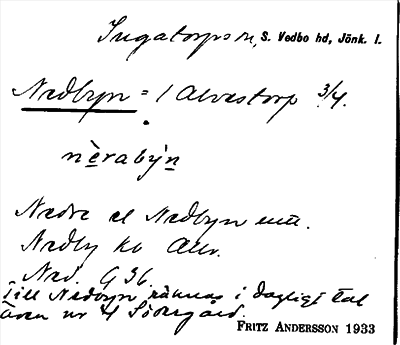 Ingatorps sn, S. Vedbo hd, Jönk. l.
Nedbyn = 1 Alvestorp 3/4.
nèrabỳn
Nedre el Nedbyn
Nedby kv
Ned. G 36.
Till Nedbyn räknas i dagligt tal
även nr 4 Södergård.
FRITZ ANDERSSON 1933